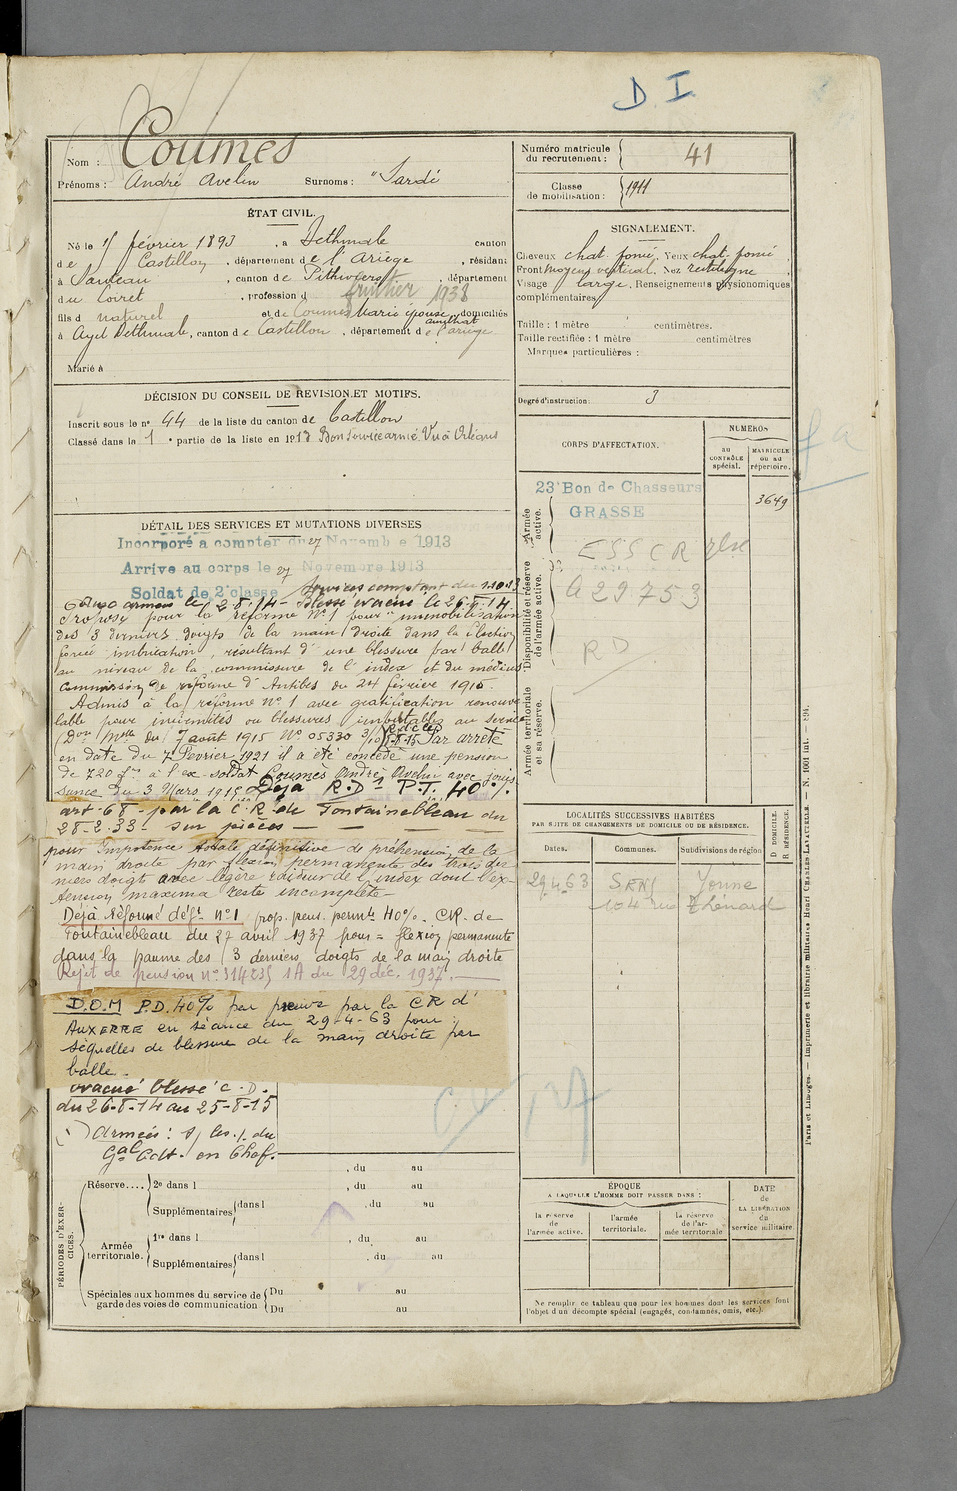 D.I.
Nom : Coumes
Prénoms : André Avelin Surnoms : "Sardé
Numéro matricule du recrutement : 41
Classe de mobilisation : 1911
ÉTAT CIVIL.
Né le 1 février 1893, à Bethmale canton
de Castillon, département de l'Ariège, résidant
à canton de Pithiviers département
du Loiret, profession d
février 1938
fils d naturel et de Coumes Marie épouse domiciliés
à Ayet Bethmale, canton de Castillon, département de l'ariège
Marié à
SIGNALEMENT.
Cheveux chat. foncé, Yeux chat. foncé
Front moyen vertical, Nez rectiligne
Visage large, Renseignements physionomiques
complémentaires
Taille : 1 mètre centimètres.
Taille rectifiée : 1 mètre centimètres
Marques particulières :
Degré d'instruction : 3
DÉCISION DU CONSEIL DE REVISION ET MOTIFS.
Inscrit sous le no 44 de la liste du canton de Castillon
Classé dans la 1 e partie de la liste en 1913 Bon Service armé. Vu à Orléans
DÉTAIL DES SERVICES ET MUTATIONS DIVERSES
Incorporé à compter du 27 Novembre 1913
Arrivé au corps le 27 Novembre 1913
Soldat de 2e classe Services comptant du 1.10.13
aux armées le 2.8.14 - Blessé évacué le 26.8.14.
Proposé pour la réforme No 1 pour "immobilisation
des 3 derniers doigts de la main droite dans la flection
forcée imbrication, résultant d'une blessure par balle
au niveau de la commissure de l'index et du médius
Commission de réforme d'Antibes du 24 février 1915.
Admis à la réforme no 1 avec gratification renouve
lable pour infirmités ou blessures imputables au service
(Don Mlle du 7 août 1915 No 05330 3/10 Par arrêté
en date du 7 Fevrier 1921 il a été concédé une pension
de 720 frs à l'ex-soldat Coumès André Avelin avec jouis
sance du 3 Mars 1915 Déjà R.D-1 P.T. 40%.
art-68 - par la C.R. de Fontainebleau du
28-2-33 - sur pièces -
pour Impotence totale définitive de préhension de la
main droite par flexion permanente des trois der
niers doigts avec légère raideur de l'index dont l'ex-
tension maxima reste incomplète -
Déjà réformé déft no 1 prop. pens. permte 40% - CR. de
Fontainebleau du 27 avril 1937 pour = flexion permanente
dans la paume des 3 derniers doigts de la main droite
Rejet de pension no 314235 1A du 29 déc. 1937.
D.O.M P.D. 40% par preuve par la CR d'
AUXERRE en séance du 29-4-63 pour :
séquelles de blessure de la main droite par
balle.
évacué blessé C.D.
du 26-8-14 au 25-8-15
Armées : du
Gal Cdt. en Chef.
CORPS D'AFFECTATION.
NUMÉROS
au CONTRÔLE spécial.
MATRICULE ou au répertoire.
Armée active.
23e Bon de Chasseurs
GRASSE
3649
ESSCR
Disponibilité et réserve de l'armée active.
a 29753
RD
Armée territoriale et sa réserve.
LOCALITÉS SUCCESSIVES HABITÉES
PAR SUITE DE CHANGEMENTS DE DOMICILE OU DE RÉSIDENCE.
Dates. Communes. Subdivisions de région
D DOMICILE. R RÉSIDENCE.
29.4.63 SENS Yonne
104 rue Thénard
PÉRIODES D'EXERCICES.
, du au
Réserve.... 2e dans l , du au
Supplémentaires dans l , du au
Armée territoriale. 1re dans l , du au
Supplémentaires dans l , du au
Spéciales aux hommes du service de garde des voies de communication Du au
Du au
ÉPOQUE
A LAQUELLE L'HOMME DOIT PASSER DANS :
la réserve de l'armée active.
l'armée territoriale.
la réserve de l'armée territoriale
DATE de LA LIBÉRATION du service militaire.
Ne remplir ce tableau que pour les hommes dont les services font
l'objet d'un décompte spécial (engagés, condamnés, omis, etc.).
Paris et Limoges. — Imprimerie et librairie militaires Henri CHARLES-LAVAUZELLE. — N. 1001 int. — 894.